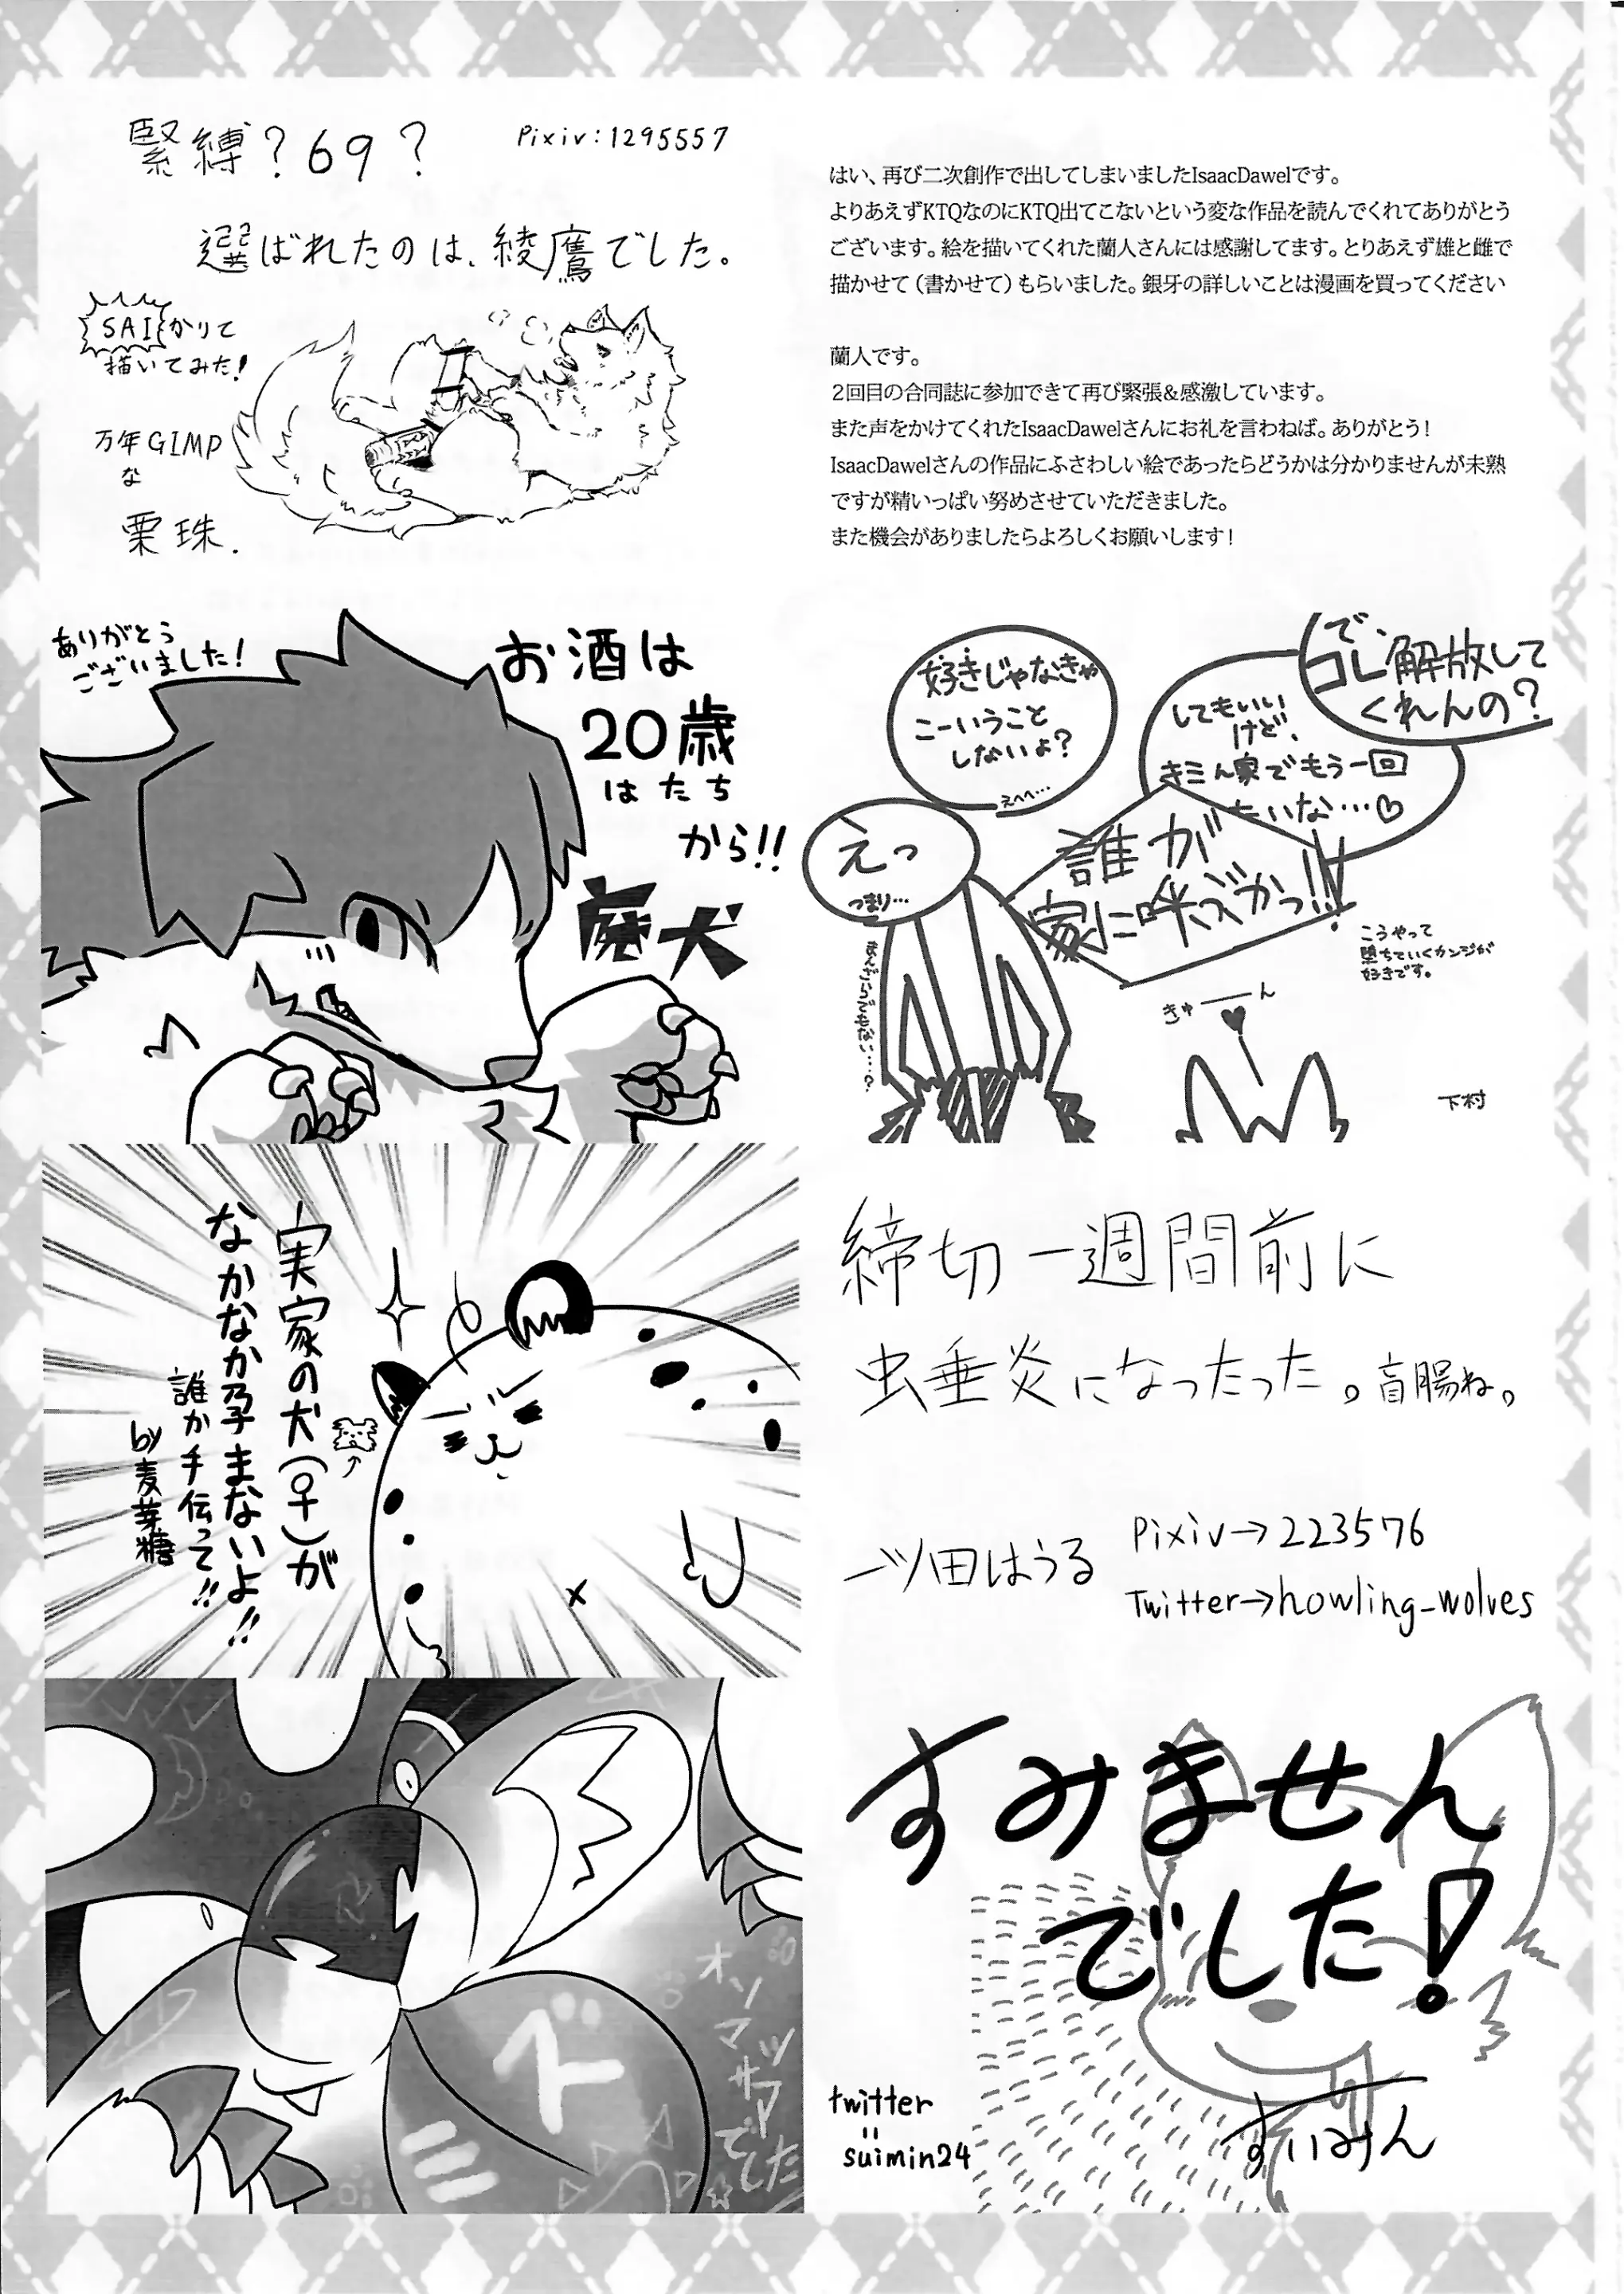 緊縛?69?
Pixiv:1295557
選ばれたのは、綾鷹でした。
SAIかりて
描いてみた!
万年GIMP
な
栗珠.
はい、再び二次創作で出してしまいましたIsaacDawelです。
よりあえずKTQなのにKTQ出てこないという変な作品を読んでくれてありがとう
ございます。絵を描いてくれた蘭人さんには感謝してます。とりあえず雄と雌で
描かせて(書かせて)もらいました。銀牙の詳しいことは漫画を買ってください
蘭人です。
2回目の合同誌に参加できて再び緊張&感激しています。
また声をかけてくれたIsaacDawelさんにお礼を言わねば。ありがとう!
IsaacDawelさんの作品にふさわしい絵であったらどうかは分かりませんが未熟
ですが精いっぱい努めさせていただきました。
また機会がありましたらよろしくお願いします!
ありがとう
ございました!
お酒は
20歳
はたち
から!!
廃犬
で、
コレ解放して
くれんの?
してもいい
けど、
キミん家でもう一回
たいな…♡
好きじゃなきゃ
こーいうこと
しないよ?
えへへ…
えっ
つまり…
まんざらでもない…?
誰が
家に呼ぶかっ!!
こうやって
堕ちていくカンジが
好きです。
きゅーん
下村
実家の犬(♀)が
なかなか孕まないよ!!
誰か手伝って!!
by麦芽糖
締切一週間前に
虫垂炎になったった。盲腸ね。
一ツ田はうる
Pixiv→223576
Twitter→howling_wolves
オソマツ
サマ
でした
ド
ミ
すみません
でした!
twitter
=
suimin24
すいみん